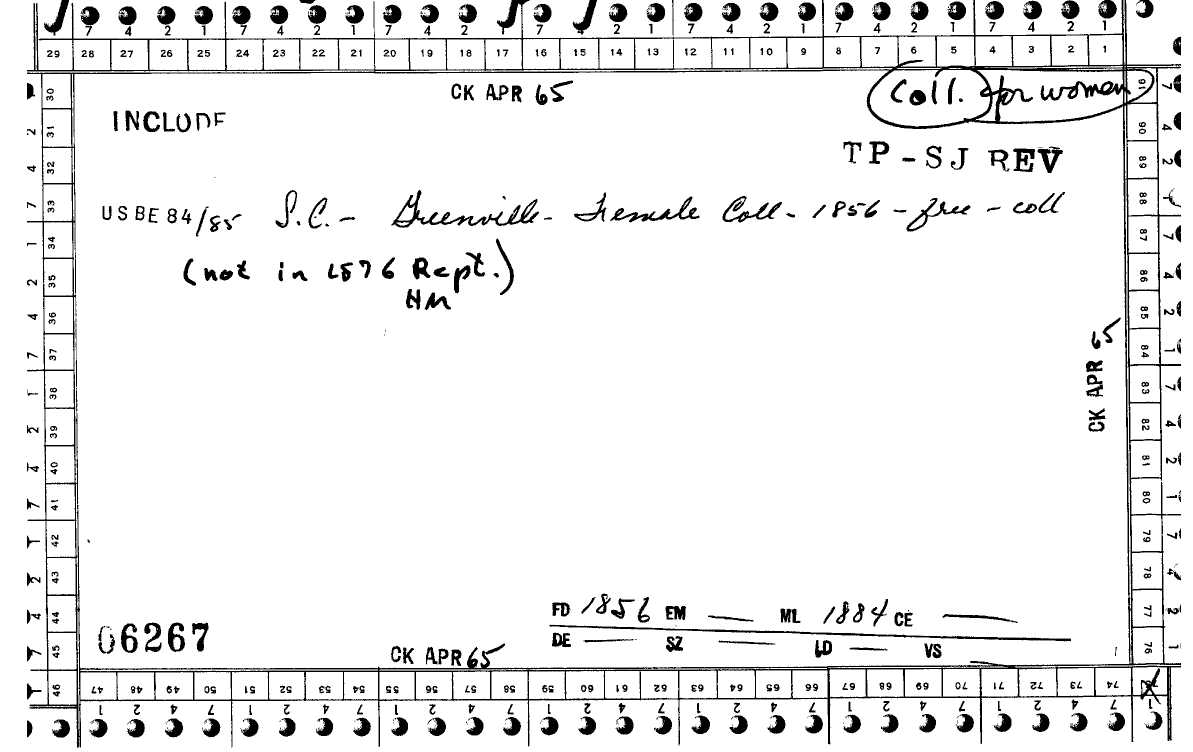 7 4 2 1 7 4 2 1 7 4 2 1 7 4 2 1 7 4 2 1 7 4 2 1 7 4 2 1
29 28 27 26 25 24 23 22 21 20 19 18 17 16 15 14 13 12 11 10 9 8 7 6 5 4 3 2 1
CK APR 65
Coll. for women
INCLUDE
TP-SJ REV
USBE 84/85 S.C. - Greenville - Female Coll - 1856 - free - coll
(not in 1876 Rept.)
HM
CK APR 65
FD 1856 EM — ML 1884 CE —
DE — SZ — LD — VS —
06267
CK APR 65
30 31 32 33 34 35 36 37 38 39 40 41 42 43 44 45 46
91 90 89 88 87 86 85 84 83 82 81 80 79 78 77 76
47 48 49 50 51 52 53 54 55 56 57 58 59 60 61 62 63 64 65 66 67 68 69 70 71 72 73 74
1 2 4 7 1 2 4 7 1 2 4 7 1 2 4 7 1 2 4 7 1 2 4 7 1 2 4 7